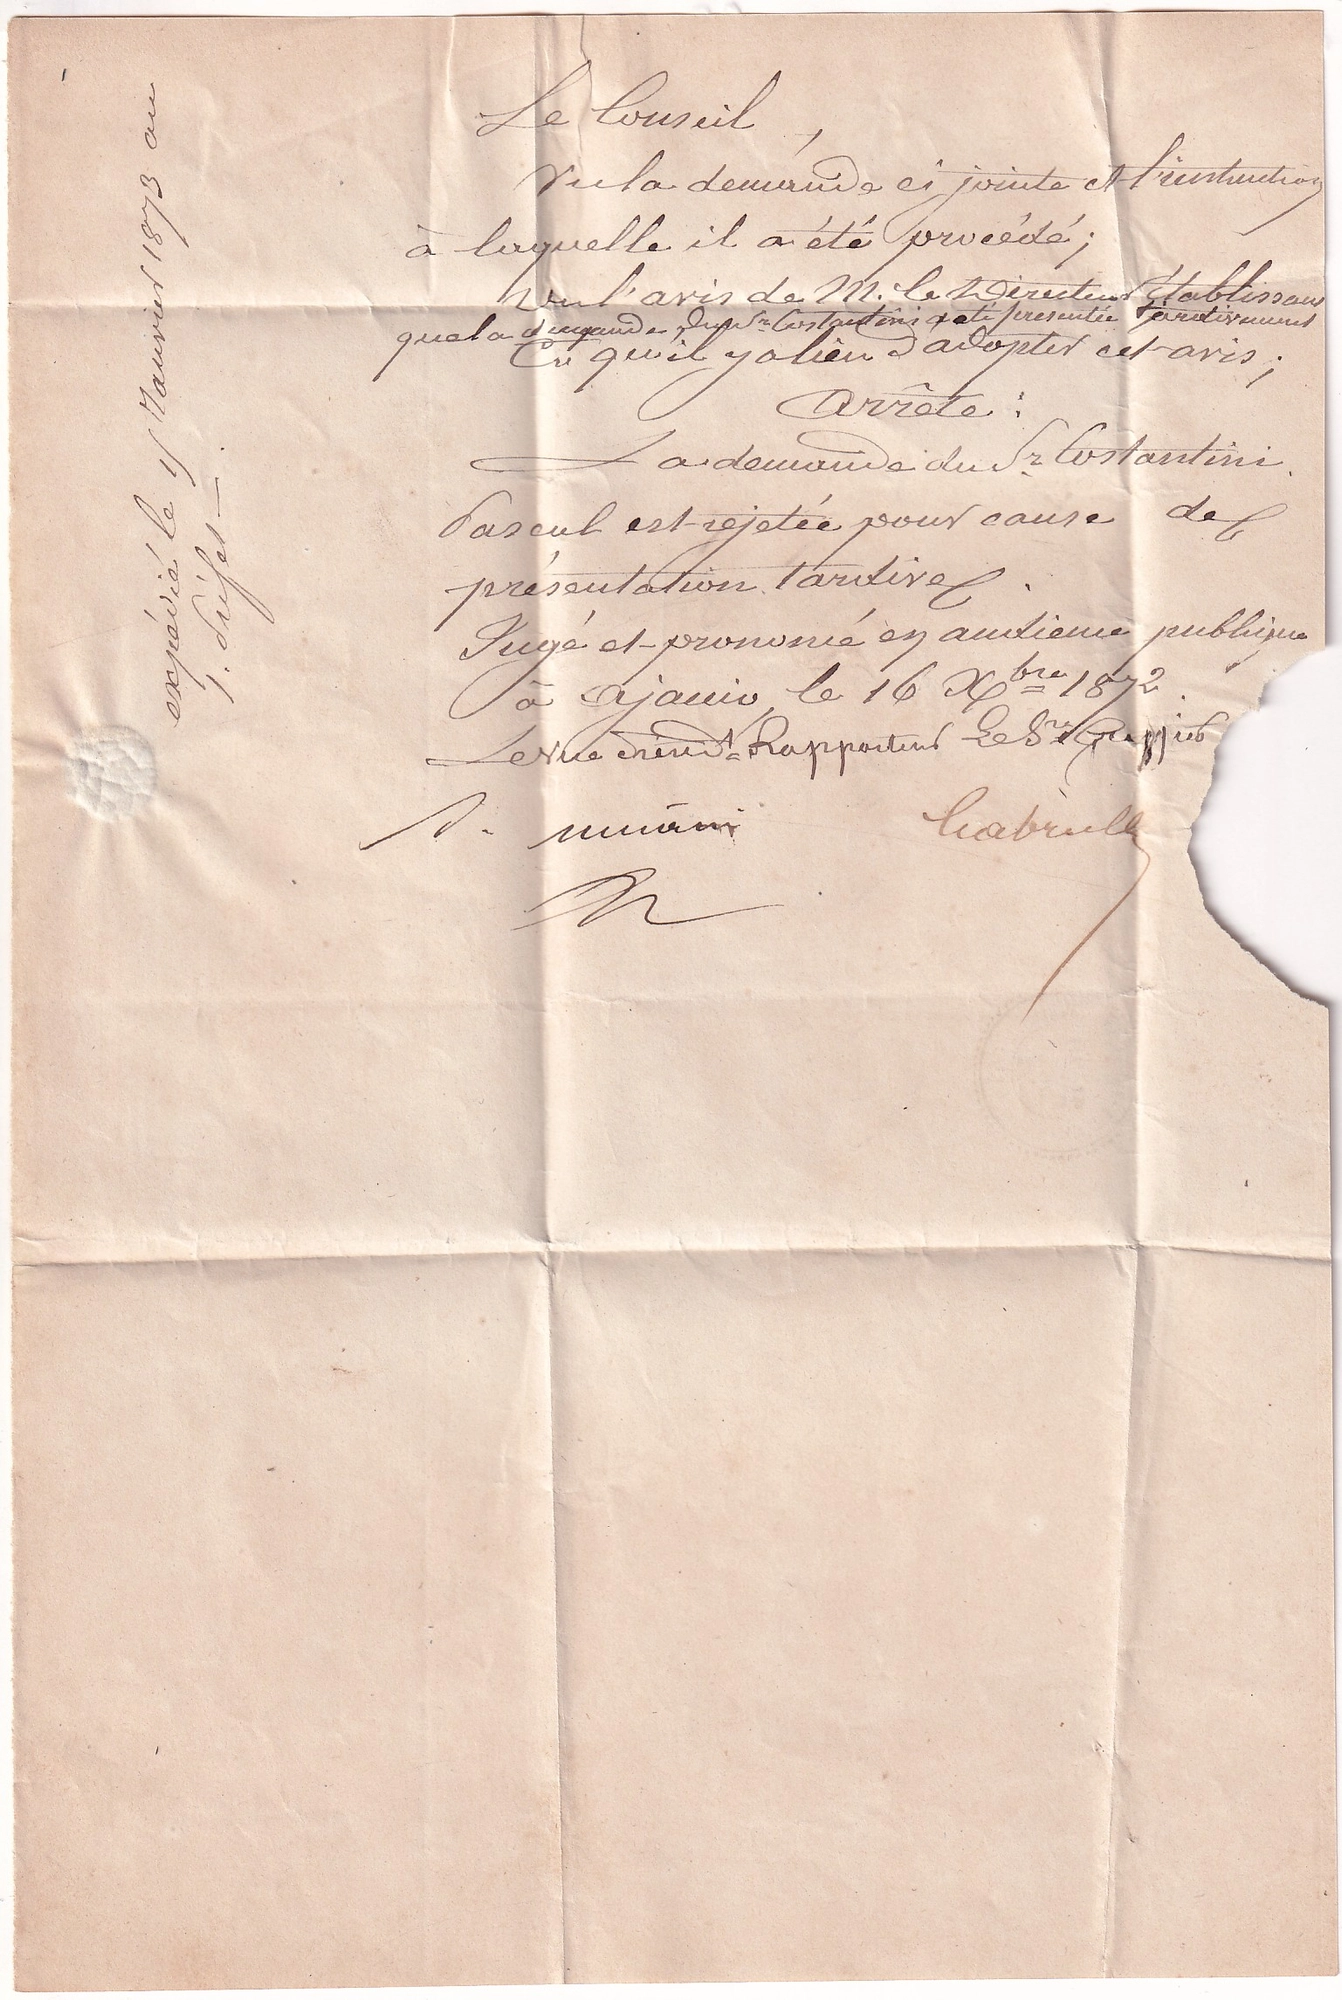 Le Conseil,
Vu la demande ci jointe et l'instruction
à laquelle il a été procédé;
Vu l'avis de M. le Directeur établissant
que la demande du Sr Costantini a été présentée tardivement
Cu qu'il y a lieu d'adopter cet avis;
Arrête:
La demande du Sr Costantini
Pascal est rejetée pour cause de
présentation tardive.
Jugé et prononcé en audience publique
à Ajaccio, le 16 Xbre 1872.
Rapporteur Le Sre Greffier
expédié le 4 Janvier 1873 au
S. Préfet